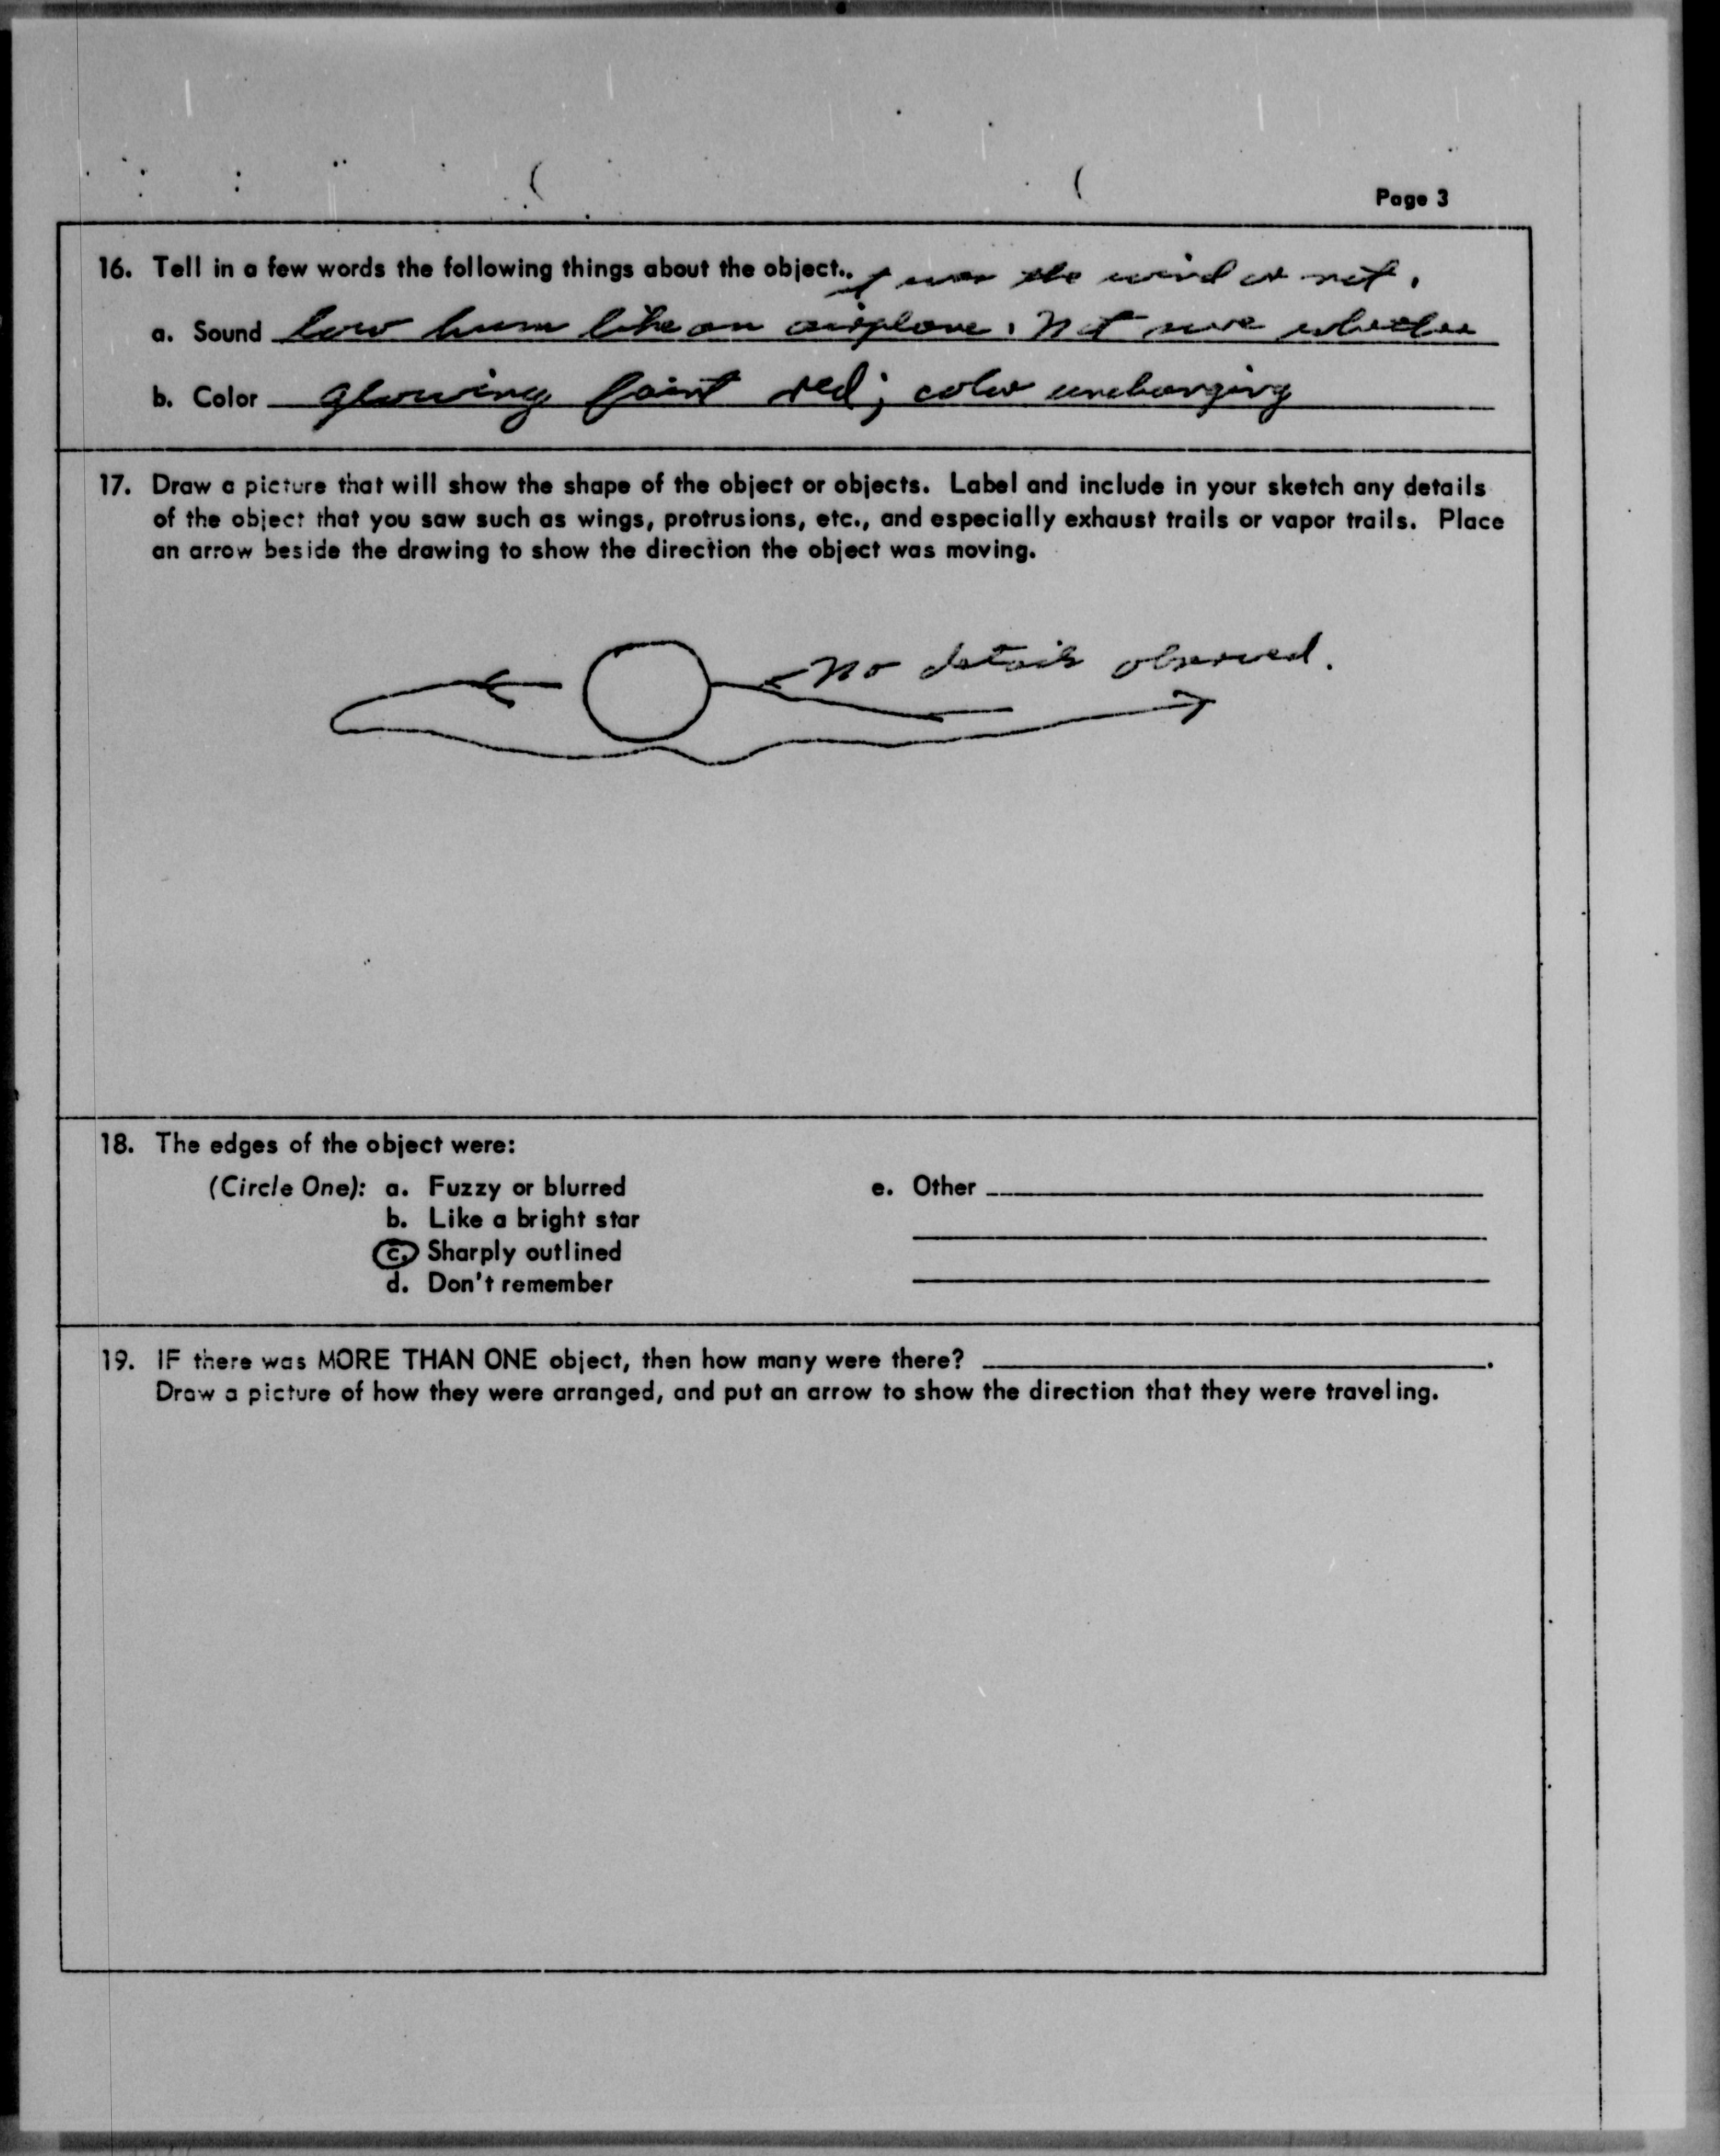 Page 3
16. Tell in a few words the following things about the object.
it was the wind or not.
a. Sound low hum like an airplane. Not sure whether
b. Color glowing faint red; color unchanging
17. Draw a picture that will show the shape of the object or objects. Label and include in your sketch any details
of the object that you saw such as wings, protrusions, etc., and especially exhaust trails or vapor trails. Place
an arrow beside the drawing to show the direction the object was moving.
No details observed.
18. The edges of the object were:
(Circle One): a. Fuzzy or blurred
b. Like a bright star
c. Sharply outlined
d. Don't remember
e. Other
19. IF there was MORE THAN ONE object, then how many were there?
Draw a picture of how they were arranged, and put an arrow to show the direction that they were traveling.